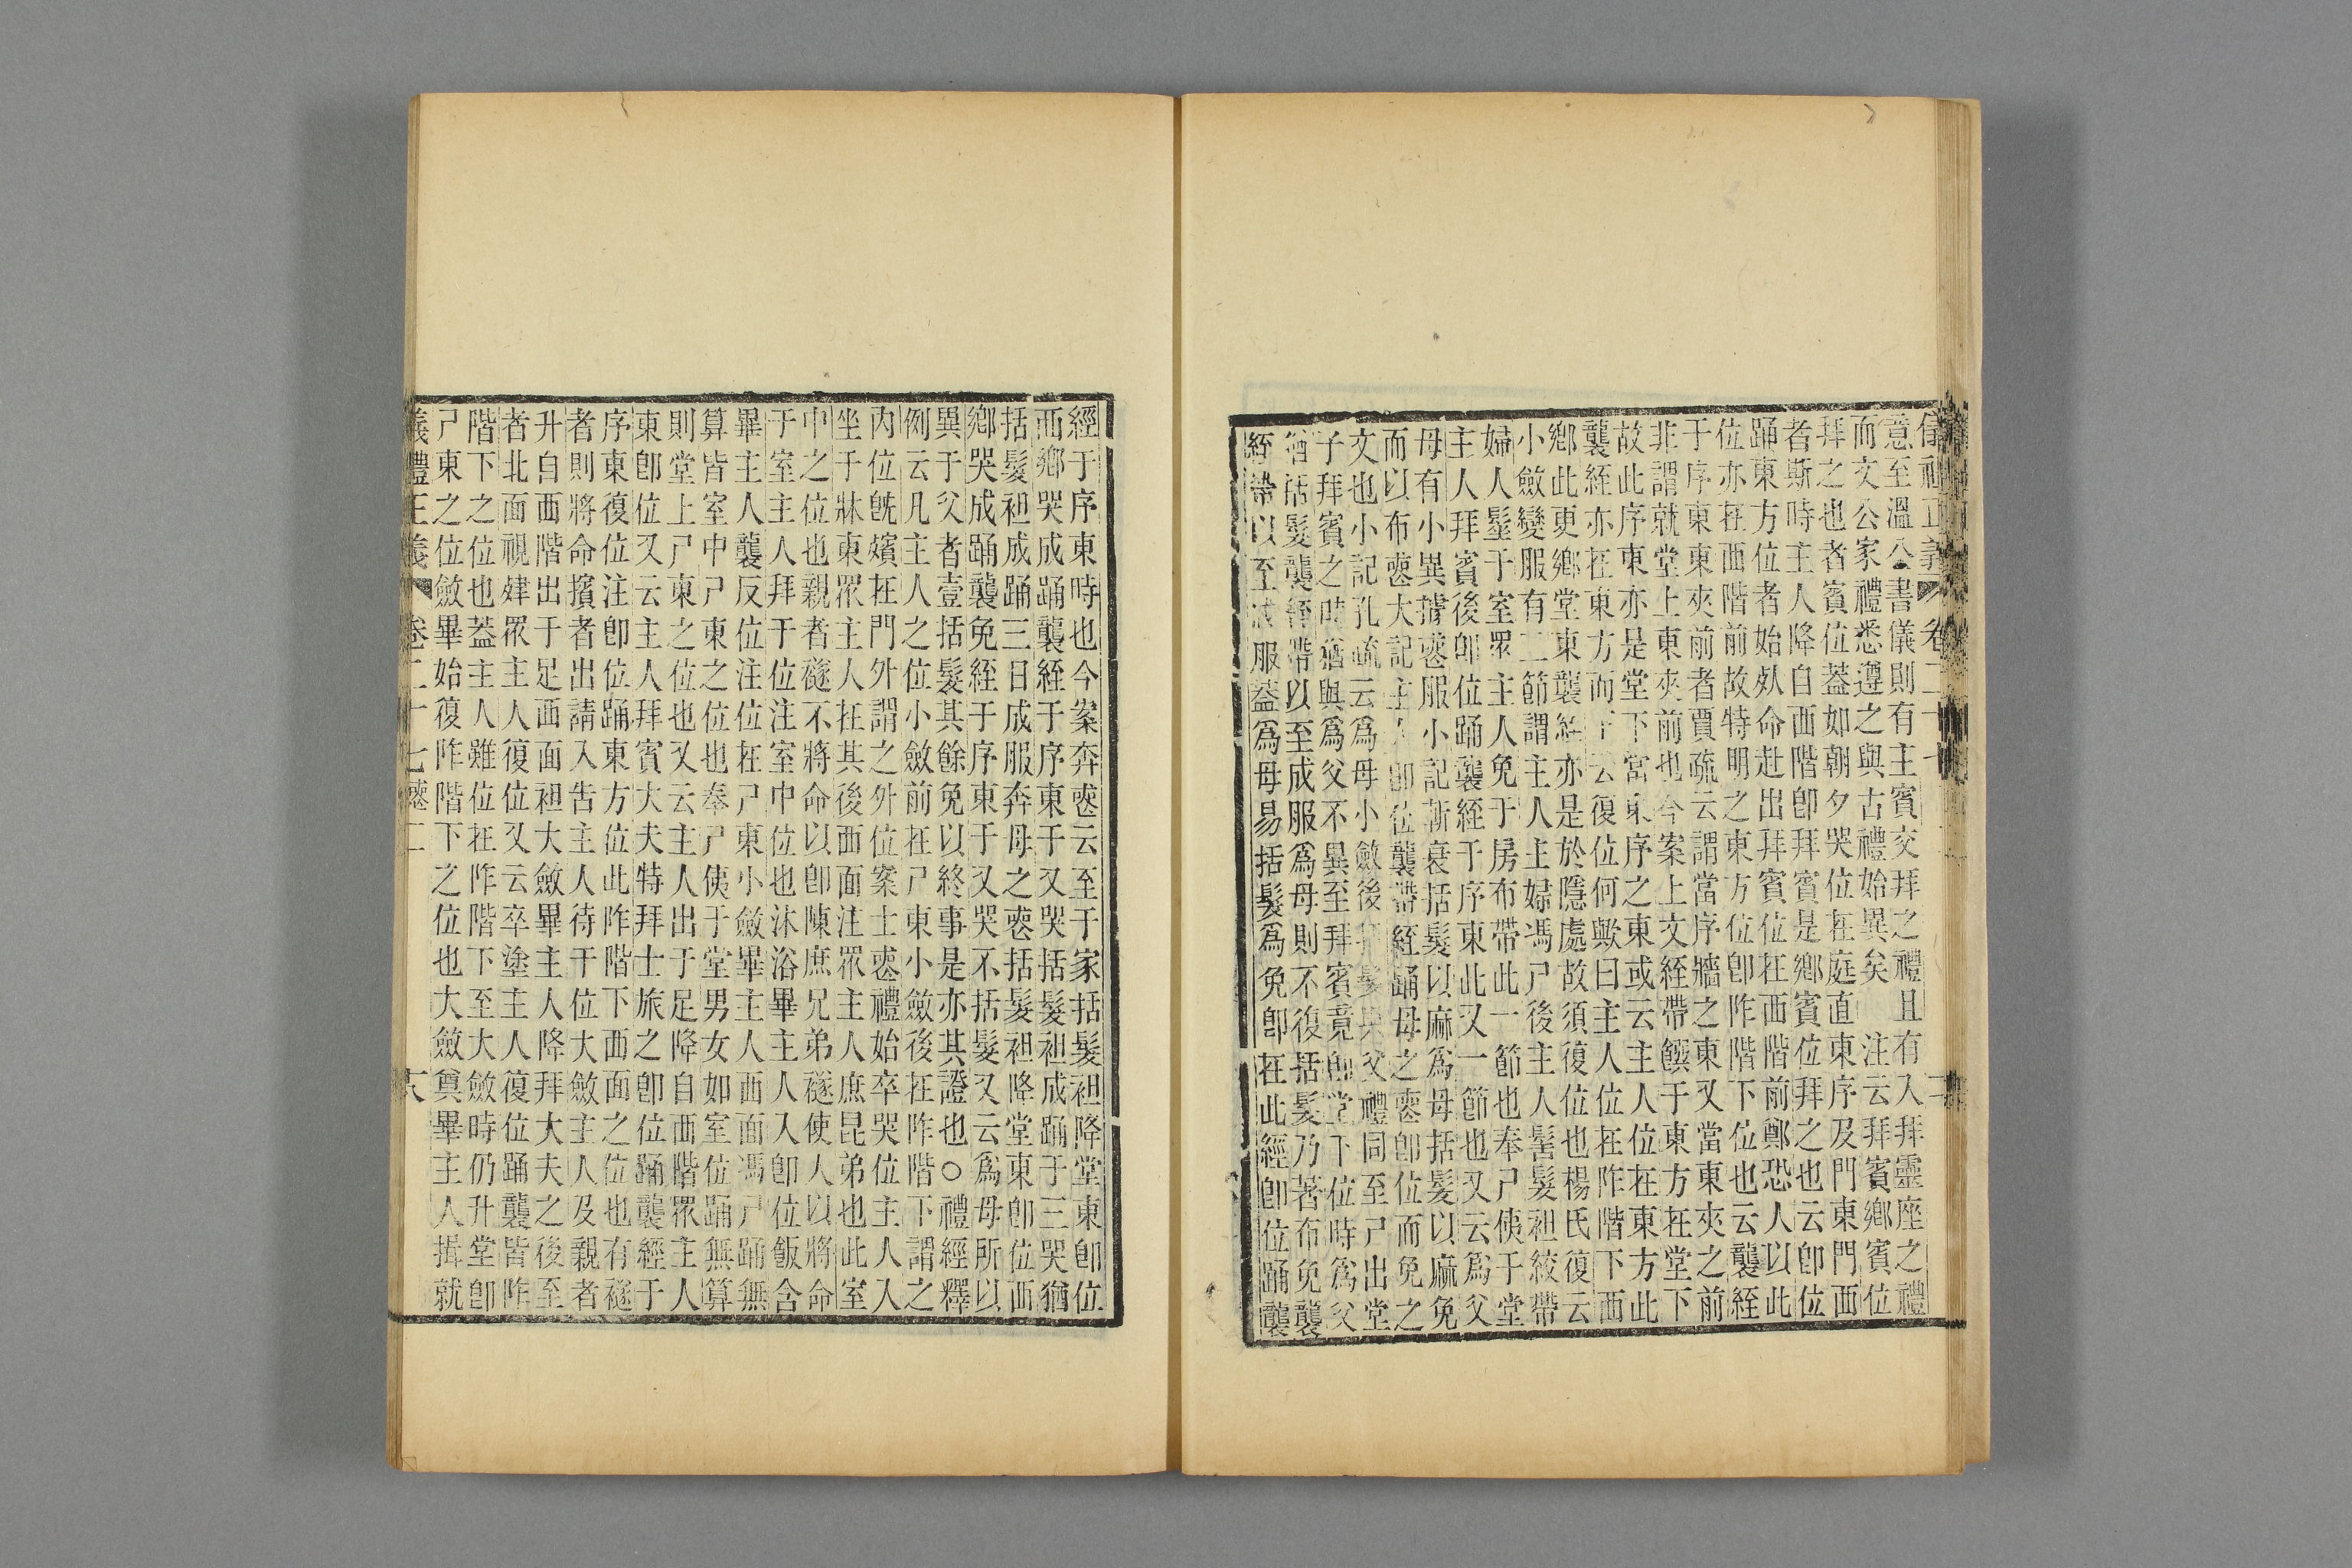 意至溫公書儀則有主賓交拜之禮且有入拜靈座之禮
而文公家禮悉遵之與古禮始異矣 注云拜賓鄉賓位
拜之也者賓位葢如朝夕哭位在庭直東序及門東門西
者斯時主人降自西階卽拜賓是鄉賓位拜之也云卽位
踊東方位者始𣦸命赴出拜賓位在西階前鄭恐人以此
位亦在西階前故特明之東方位卽阼階下位也云襲絰
于序東東夾前者賈疏云謂當序牆之東又當東夾之前
非謂就堂上東夾前也今案上文絰帶饌于東方在堂下
故此序東亦是堂下當東序之東或云主人位在東方此
襲絰亦在東方而云復位何歟曰主人位在阼階下西
鄉此更鄉堂東襲絰亦是於隱處故須復位也楊氏復云
小斂變服有二節謂主人主婦馮尸後主人髺髮袒絞帶
婦人髽于室眾主人免于房布帶此一節也奉尸侇于堂
主人拜賓後卽位踊襲絰于序東此又一節也又云爲父
母有小異據喪服小記斬衰括髮以麻爲母括髮以麻免
而以布喪大記主人卽位襲帶絰踊母之喪卽位而免之
文也小記孔疏云爲母小斂後括髮與父禮同至尸出堂
子拜賓之時猶與爲父不異至拜賓竟卽堂下位時爲父
猶括髮襲絰帶以至成服爲母則不復括髮乃著布免襲
絰帶以至成服葢爲母易括髮爲免卽在此經卽位踊襲
經于序東時也今案奔喪云至于家括髮袒降堂東卽位
西鄉哭成踊襲絰于序東于又哭括髮袒成踊于三哭猶
括髮袒成踊三日成服奔母之喪括髮袒降堂東卽位西
鄉哭成踊襲免絰于序東于又哭不括髮又云爲母所以
異于父者壹括髮其餘免以終事是亦其證也○禮經釋
例云凡主人之位小斂前在尸東小斂後在阼階下謂之
內位旣殯在門外謂之外位案士喪禮始卒哭位主人入
坐于牀東眾主人在其後西面注眾主人庶昆弟也此室
中之位也親者襚不將命以卽陳庶兄弟襚使人以將命
于室主人拜于位注室中位也沐浴畢主人入卽位飯含
畢主人襲反位注位在尸東小斂畢主人西面馮尸踊無
算皆室中尸東之位也奉尸侇于堂男女如室位踊無算
則堂上尸東之位也又云主人出于足降自西階眾主人
東卽位又云主人拜賓大夫特拜士旅之卽位踊襲絰于
序東復位注卽位踊東方位此阼階下西面之位也有襚
者則將命擯者出請入告主人待于位大斂主人及親者
升自西階出于足西面袒大斂畢主人降拜大夫之後至
者北面視肂眾主人復位又云卒塗主人復位踊襲皆阼
階下之位也葢主人雖位在阼階下至大斂時仍升堂卽
尸東之位斂畢始復阼階下之位也大斂奠畢主人揖就
儀禮正義 卷二十七喪二 十八